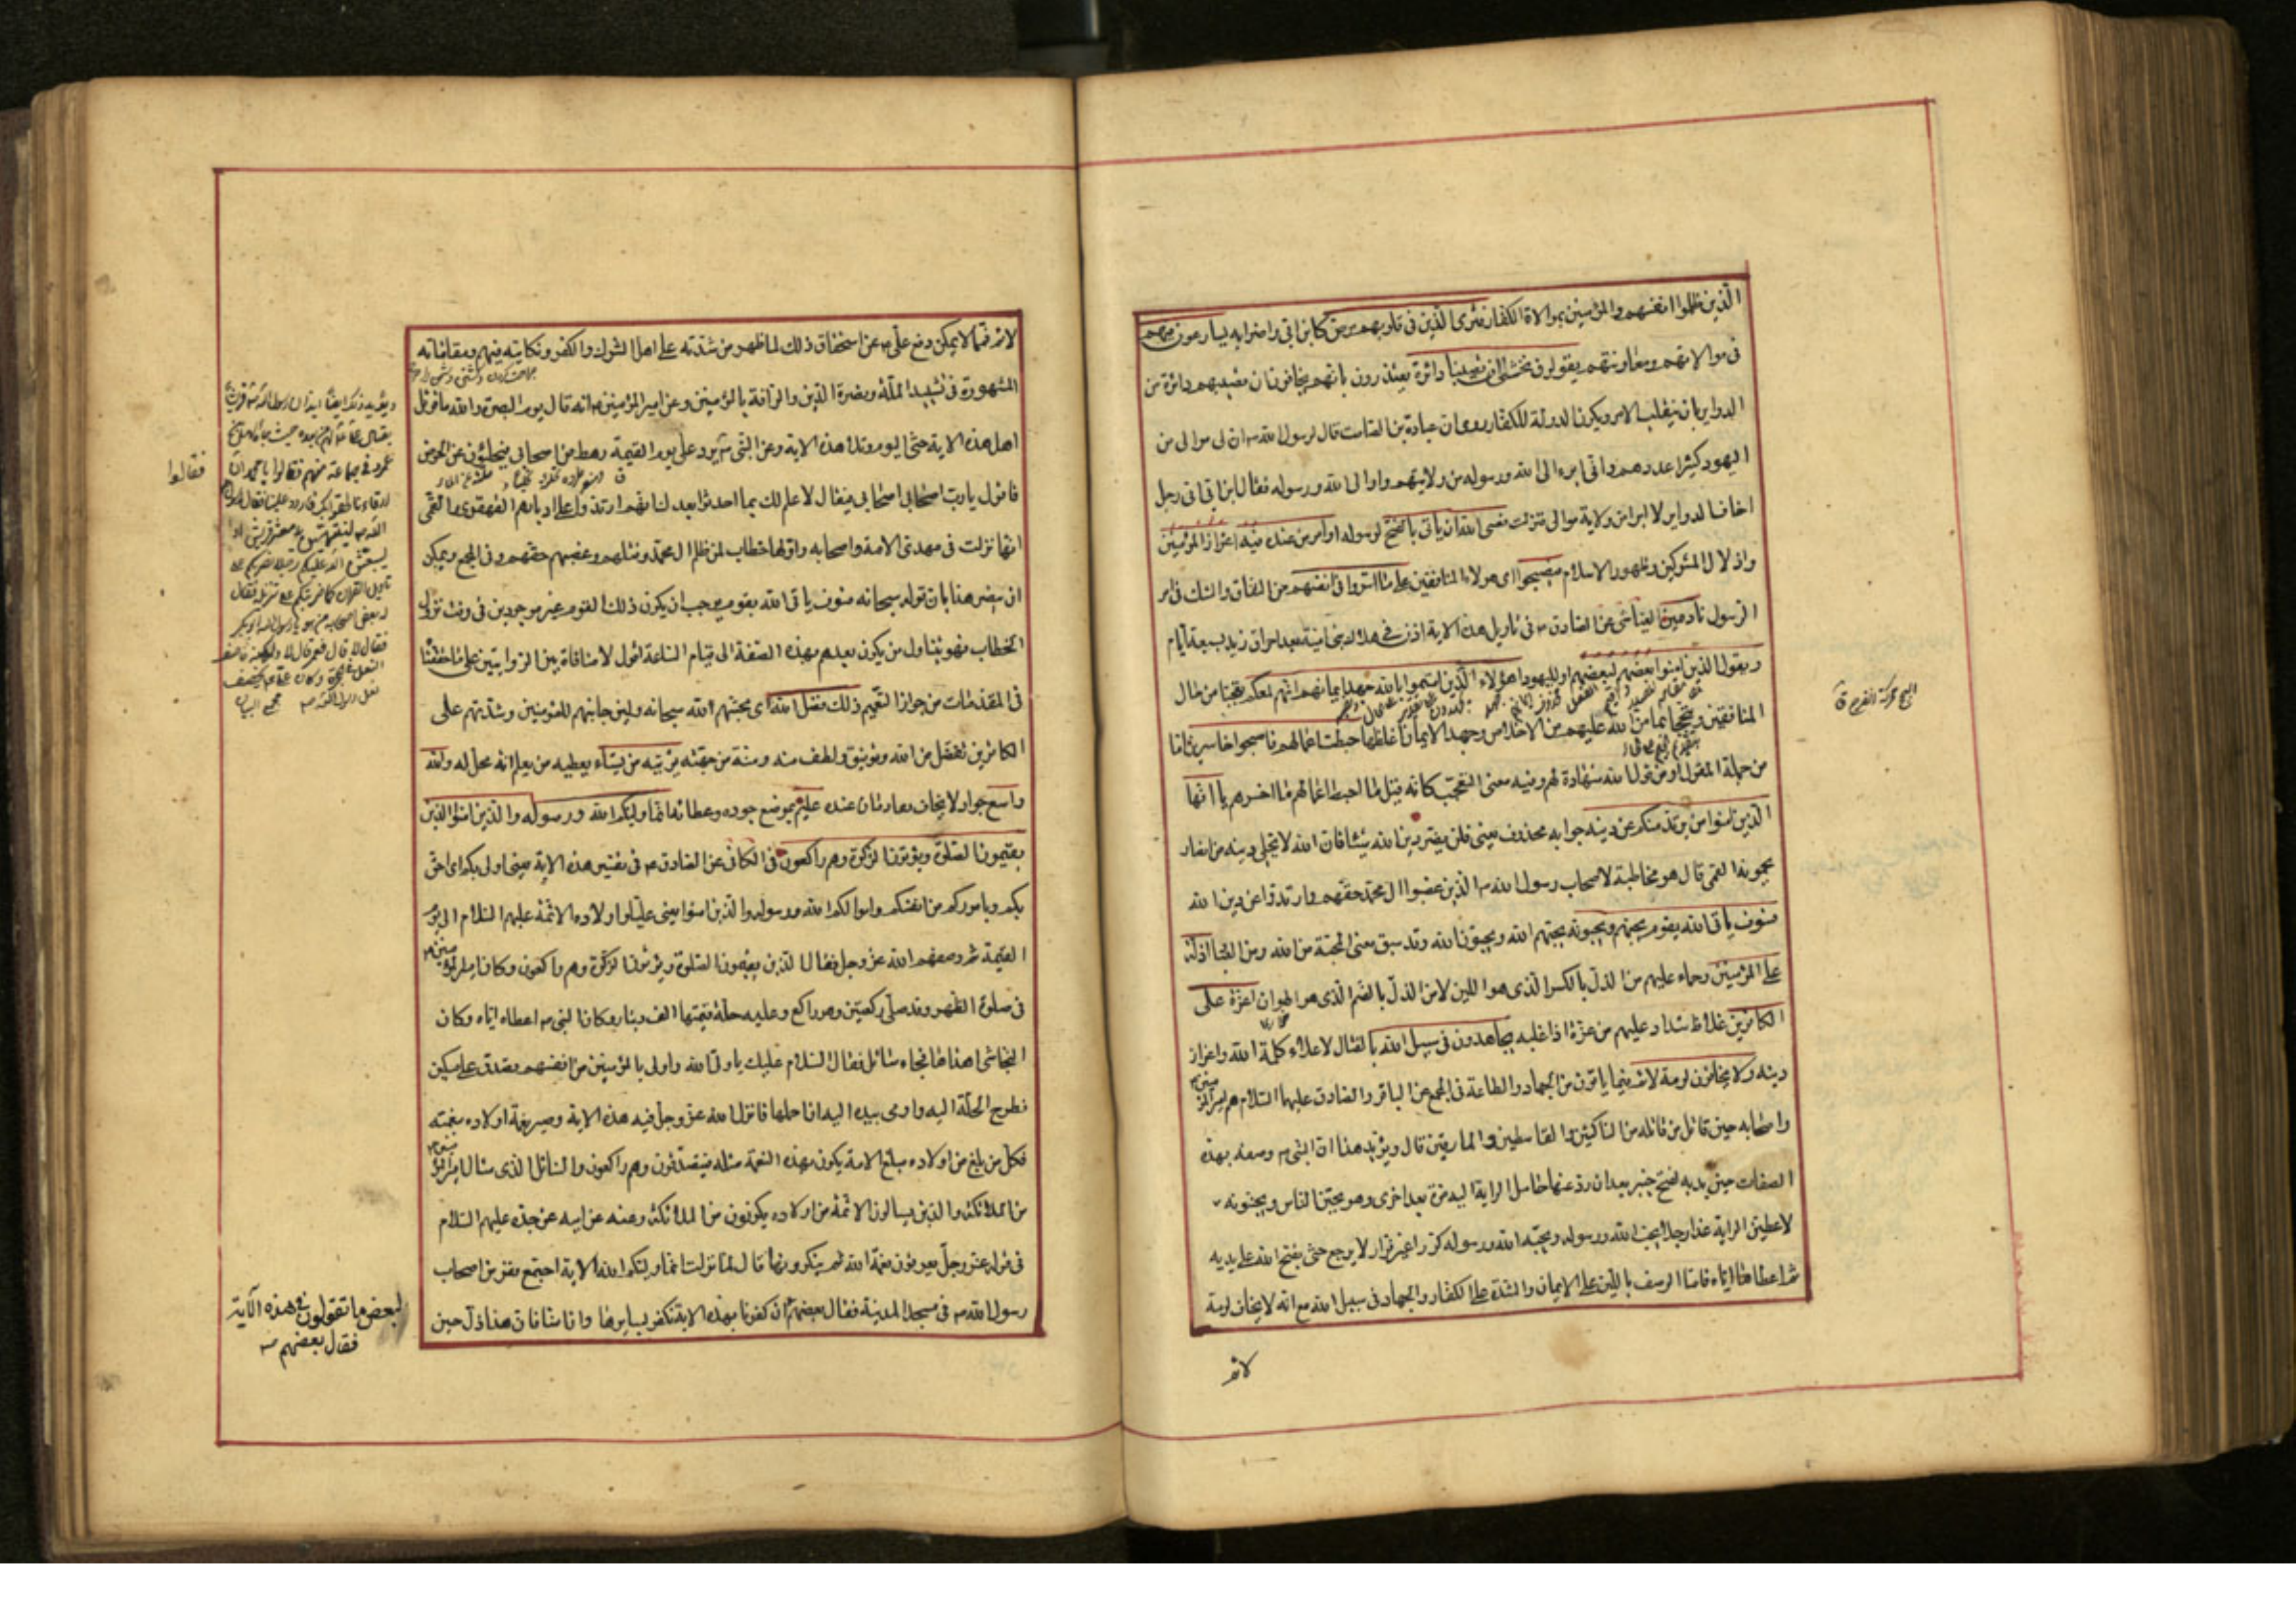 الذين ظلموا انفسهم والمؤمنين بموالاة الكفار فترى الذين فى قلوبهم مرض كابن ابى واضرابه يسارعون فيهم
فى موالاتهم ومعاونتهم يقولون نخشى ان تصيبنا دائرة يعتذرون بانهم يخافون ان تصيبهم دائرة من
الدواير بان ينقلب الامر ويكون الدولة للكفار روى ان عبادة بن الصامت قال لرسول الله ص ان لى موالى من
اليهود كثيرا عددهم وانى ابرء الى الله ورسوله من ولايتهم واوالى الله ورسوله فقال ابن ابى انى رجل
اخاف الدواير لا ابرا من ولاية موالى فنزلت فعسى الله ان ياتى بالفتح لرسوله او امر من عنده فيه اعزاز المؤمنين
واذلال المشركين وظهور الاسلام فيصبحوا اى هولاء المنافقين على ما اسروا فى انفسهم من النفاق والشك فى امر
الرسول نادمين العياشى عن الصادق ع فى تاويل هذه الاية اذن فى هلاك بنى امية بعد احراق زيد سبعة ايام
ويقول الذين امنوا بعضهم لبعضهم او لليهود اهؤلاء الذين اقسموا بالله جهد ايمانهم انهم لمعكم تعجبا من حال
المنافقين وتبجحا بما من الله عليهم من الاخلاص وجهد الايمان اغلظها حبطت اعمالهم فاصبحوا خاسرين اما
من جملة المقول او من قول الله شهادة لهم وفيه معنى التعجب كانه قيل ما احبط اعمالهم ما اخسرهم يا ايها
الذين امنوا من يرتد منكم عن دينه جوابه محذوف يعنى فلن يضر دين الله شيئا فان الله لا يخلى دينه من انصار
يحمونه القمى قال هو مخاطبة لاصحاب رسول الله ص الذين غصبوا ال محمد حقهم وارتدوا عن دين الله
فسوف ياتى الله بقوم يحبهم ويحبونه يحبهم الله ويحبون الله وقد سبق معنى المحبة من الله ومن العباد اذلة
على المؤمنين رحماء عليهم من الذل بالكسر الذى هو اللين لا من الذل بالضم الذى هو الهوان اعزة على
الكافرين غلاظ شداد عليهم من عزه اذا غلبه يجاهدون فى سبيل الله بالقتال لاعلاء كلمة الله واعزاز
دينه ولا يخافون لومة لائم فيما ياتون من الجهاد والطاعة فى المجمع عن الباقر والصادق عليهما السلام هم امير المؤمنين
واصحابه حين قاتل من قاتله من الناكثين والقاسطين والمارقين قال ويؤيد هذا ان النبى ص وصفه بهذه
الصفات حين ندبه لفتح خيبر بعد ان رد عنها حامل الراية اليه مرة بعد اخرى وهو يجبن الناس ويجبنونه
لاعطين الراية غدا رجلا يحب الله ورسوله ويحبه الله ورسوله كرارا غير فرار لا يرجع حتى يفتح الله على يديه
ثم اعطاها اياه فاما الوصف باللين على الايمان والشدة على الكفار والجهاد فى سبيل الله مع انه لا يخاف لومة
لائم
لائم فمما لا يمكن دفع على ع عن استحقاق ذلك لما ظهر من شدته على اهل الشرك والكفر ونكايته فيهم ومقاماته
المشهورة فى تشييد الملة ونصرة الدين والرافة بالمؤمنين وعن امير المؤمنين ع انه قال يوم البصرة والله ما قوتل
اهل هذه الاية حتى اليوم وتلا هذه الاية وعن النبى ص يرد على يوم القيمة رهط من اصحابى فيحلؤن عن الحوض
فاقول يا رب اصحابى اصحابى فيقال لا علم لك بما احدثوا بعدك انهم ارتدوا على ادبارهم القهقرى والقمى
انها نزلت فى مهدى الامة واصحابه واولها خطاب لمن ظلم ال محمد وقتلهم وغصبهم حقهم وفى المجمع ويمكن
ان ينصر هذا بان قوله سبحانه فسوف ياتى الله بقوم يوجب ان يكون ذلك القوم غير موجودين فى وقت نزول
الخطاب فهو يتناول من يكون بعدهم بهذه الصفة الى قيام الساعة اقول لا منافاة بين الروايتين على ما حققنا
فى المقدمات من جواز التعميم ذلك فضل الله اى محبتهم الله سبحانه ولين جانبهم للمؤمنين وشدتهم على
الكافرين تفضل من الله وتوفيق ولطف منه ومنة من جهته يؤتيه من يشاء يعطيه من يعلم انه محل له والله
واسع جواد لا يخاف نفاد ما عنده عليم بموضع جوده وعطائه انما وليكم الله ورسوله والذين امنوا الذين
يقيمون الصلوة ويؤتون الزكوة وهم راكعون فى الكافى عن الصادق ع فى تفسير هذه الاية يعنى اولى بكم اى احق
بكم وباموركم من انفسكم واموالكم الله ورسوله والذين امنوا يعنى عليا واولاده الائمة عليهم السلام الى يوم
القيمة ثم وصفهم الله عز وجل فقال الذين يقيمون الصلوة ويؤتون الزكوة وهم راكعون وكان امير المؤمنين ع
فى صلوة الظهر وقد صلى ركعتين وهو راكع وعليه حلة قيمتها الف دينار وكان النبى ص اعطاه اياه وكان
النجاشى اهداها فجاء سائل فقال السلام عليك يا ولى الله واولى بالمؤمنين من انفسهم تصدق على مسكين
فطرح الحلة اليه واومى بيده اليه ان احملها فانزل الله عز وجل فيه هذه الاية وصير نعمة اولاده بنعمته
فكل من بلغ من اولاده مبلغ الامامة يكون بهذه النعمة مثله فيتصدقون وهم راكعون والسائل الذى سال امير المؤمنين ع
من الملائكة والذين يسالون الائمة من اولاده يكونون من الملائكة وعنه عن ابيه عن جده عليهم السلام
فى قوله عز وجل يعرفون نعمة الله ثم ينكرونها قال لما نزلت انما وليكم الله الاية اجتمع نفر من اصحاب
رسول الله ص فى مسجد المدينة فقال بعضهم ان كفرنا بهذه الاية نكفر بسايرها وان امنا فان هذا ذل حين
فقالوا
لبعض ما تقولون فى هذه الآية
فقال بعضهم